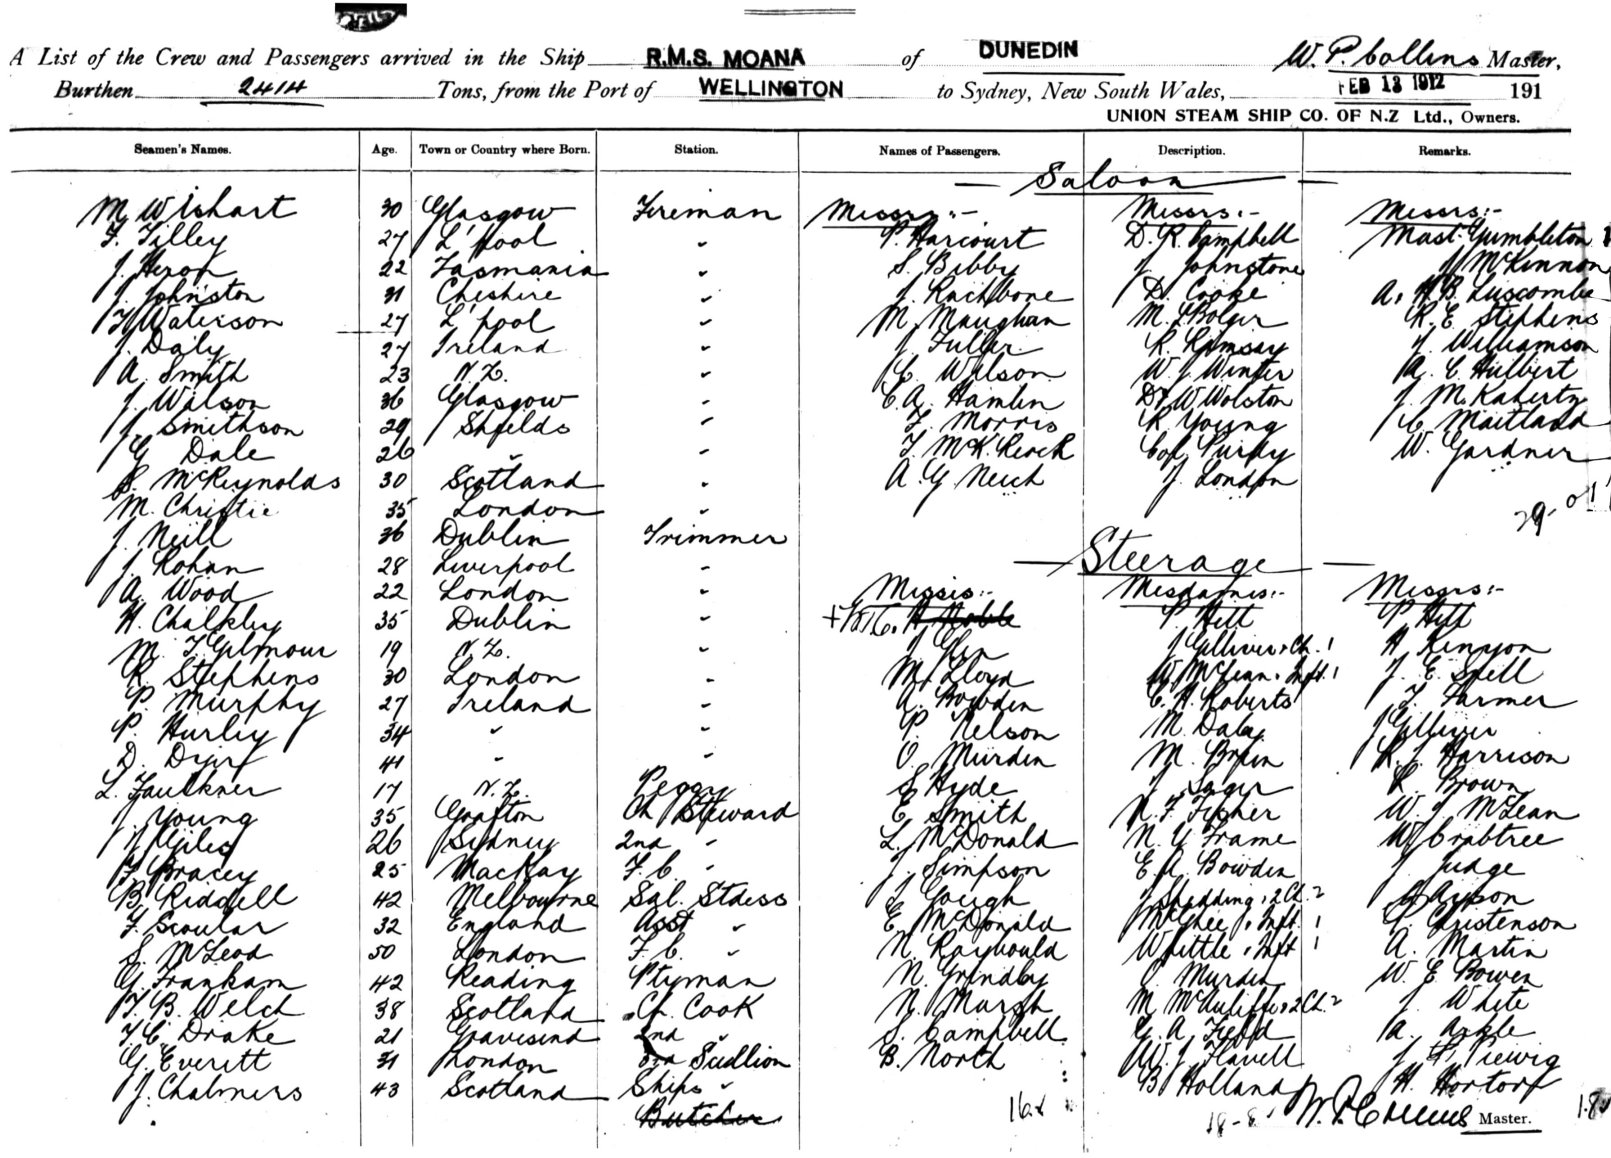 A List of the Crew and Passengers arrived in the Ship R.M.S. MOANA of DUNEDIN W. P. Collins Master,
Burthen 2414 Tons, from the Port of WELLINGTON to Sydney, New South Wales, FEB 13 1912 191
UNION STEAM SHIP CO. OF N.Z Ltd., Owners.
Seamen's Names. Age. Town or Country where Born. Station. Names of Passengers. Description. Remarks.
Saloon
M Wishart 30 Glasgow Fireman Messrs:- Messrs:- Messrs:-
F. Tilley 27 L'pool " P Harcourt D. R. Campbell Mast. Gumbleton 1
J. Heron 22 Tasmania " S. Bibby J Johnstone J McKinnon
J. Johnston 31 Cheshire " J. Rathbone D. Cooke A. H B. Luscombe
27 L'pool " M. Maughan M. J Bolger R. E. Stephens
J. Daly 27 Ireland " J Fuller R. Ramsay J Williamson
A Smith 23 N.Z. " C. Wilson W J Winter A. C Hulbert
J. Wilson 36 Glasgow " C. A. Hamlin Dr W Wolston
J Smithson 29 Shields " J. Morris R Young C Maitland
G Dale 26 " " Purdy W. Gardner
S. McReynolds 30 Scotland " A. G J. London
M. Christie 35 London "
29-
J Neill 36 Dublin Trimmer
Steerage
J. Rohan 28 Liverpool "
A Wood 22 London " Messrs:- Mesdames:- Messrs:-
H. Chalkley 35 Dublin " H Noble P Hill P Hill
M. J Gilmour 19 N.Z. " J Glen J Gilliver & Ch. 1 H Kenyon
R Stephens 30 London " M. Lloyd W McLean & Inft. 1 J. E. Spell
P Murphy 27 Ireland " A. Bowden C. H Roberts J. Farmer
P Hurley 34 " " P. Nelson M Daly J Gilliver
D. 41 " " O. Murden M. R. J Harrison
L. Faulkner 17 N.Z. Peggy S Hyde J. Sager R Brown
J Young 35 Grafton Ch Steward E Smith N. F Fisher W. J McLean
J Giles 26 Sydney 2nd " L. McDonald N. G Frame W Crabtree
F Bracey 25 MacKay F. C. " J. Simpson E. A Bowden J. Judge
B. Riddell 42 Melbourne Sal. Stdess J Gough J Shedding & 2 Ch. 2
F. Scoular 32 England Asst " E McDonald McGhee & Inft. 1 Christenson
S. McLeod 50 London F. C. " N. Raybould Whittle & Inft 1 A. Martin
G. Frankam 42 Reading Ptyman N. Grindley O Murden W. E Bowen
J. B. Welch 38 Scotland Ch. Cook N. Marsh M McAuliffe & 2 Ch. 2 J White
J C. Drake 21 Gravesend 2nd " S. Campbell G. A Field A.
G. Everitt 31 London 3rd Scullion B. North W. J Flavell
J. Chalmers 43 Scotland Ships " B Holland H.
Butcher
18-8
W. P. Collins Master.